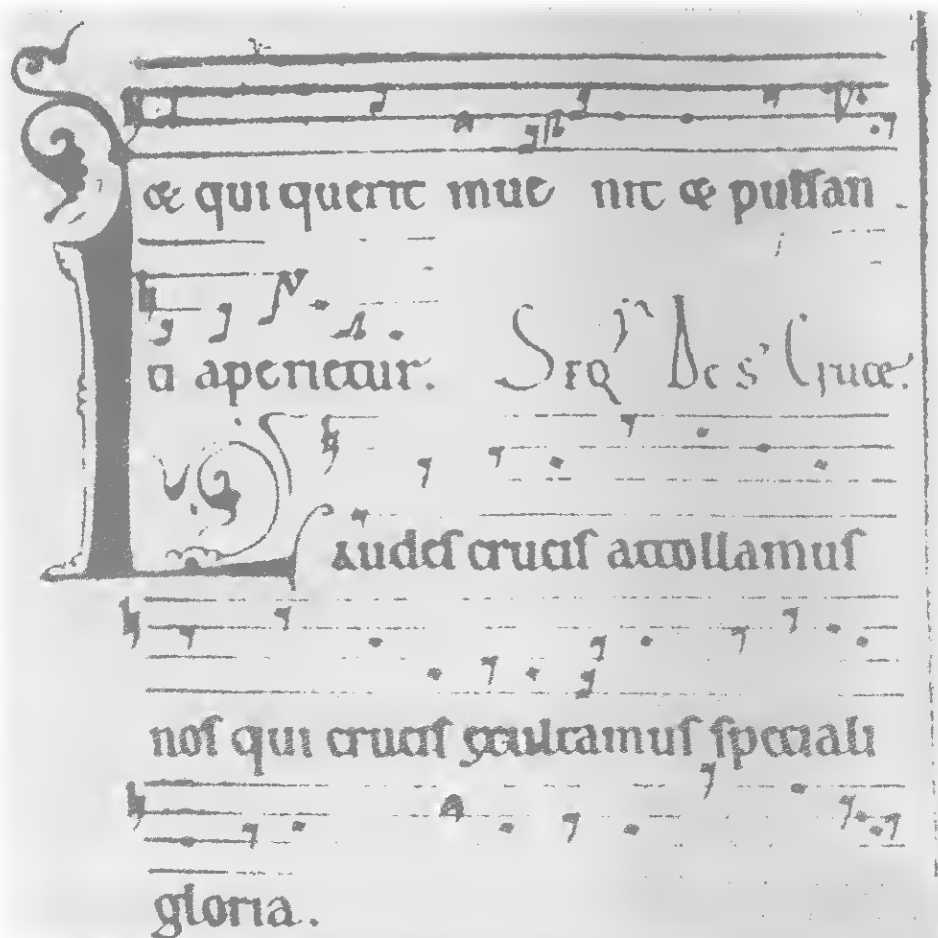 & qui querit inue nit & pulsan
ti aperietur. Seq' De s' Cruce.
Laudes crucis attollamus
nos qui crucis exultamus speciali
gloria.